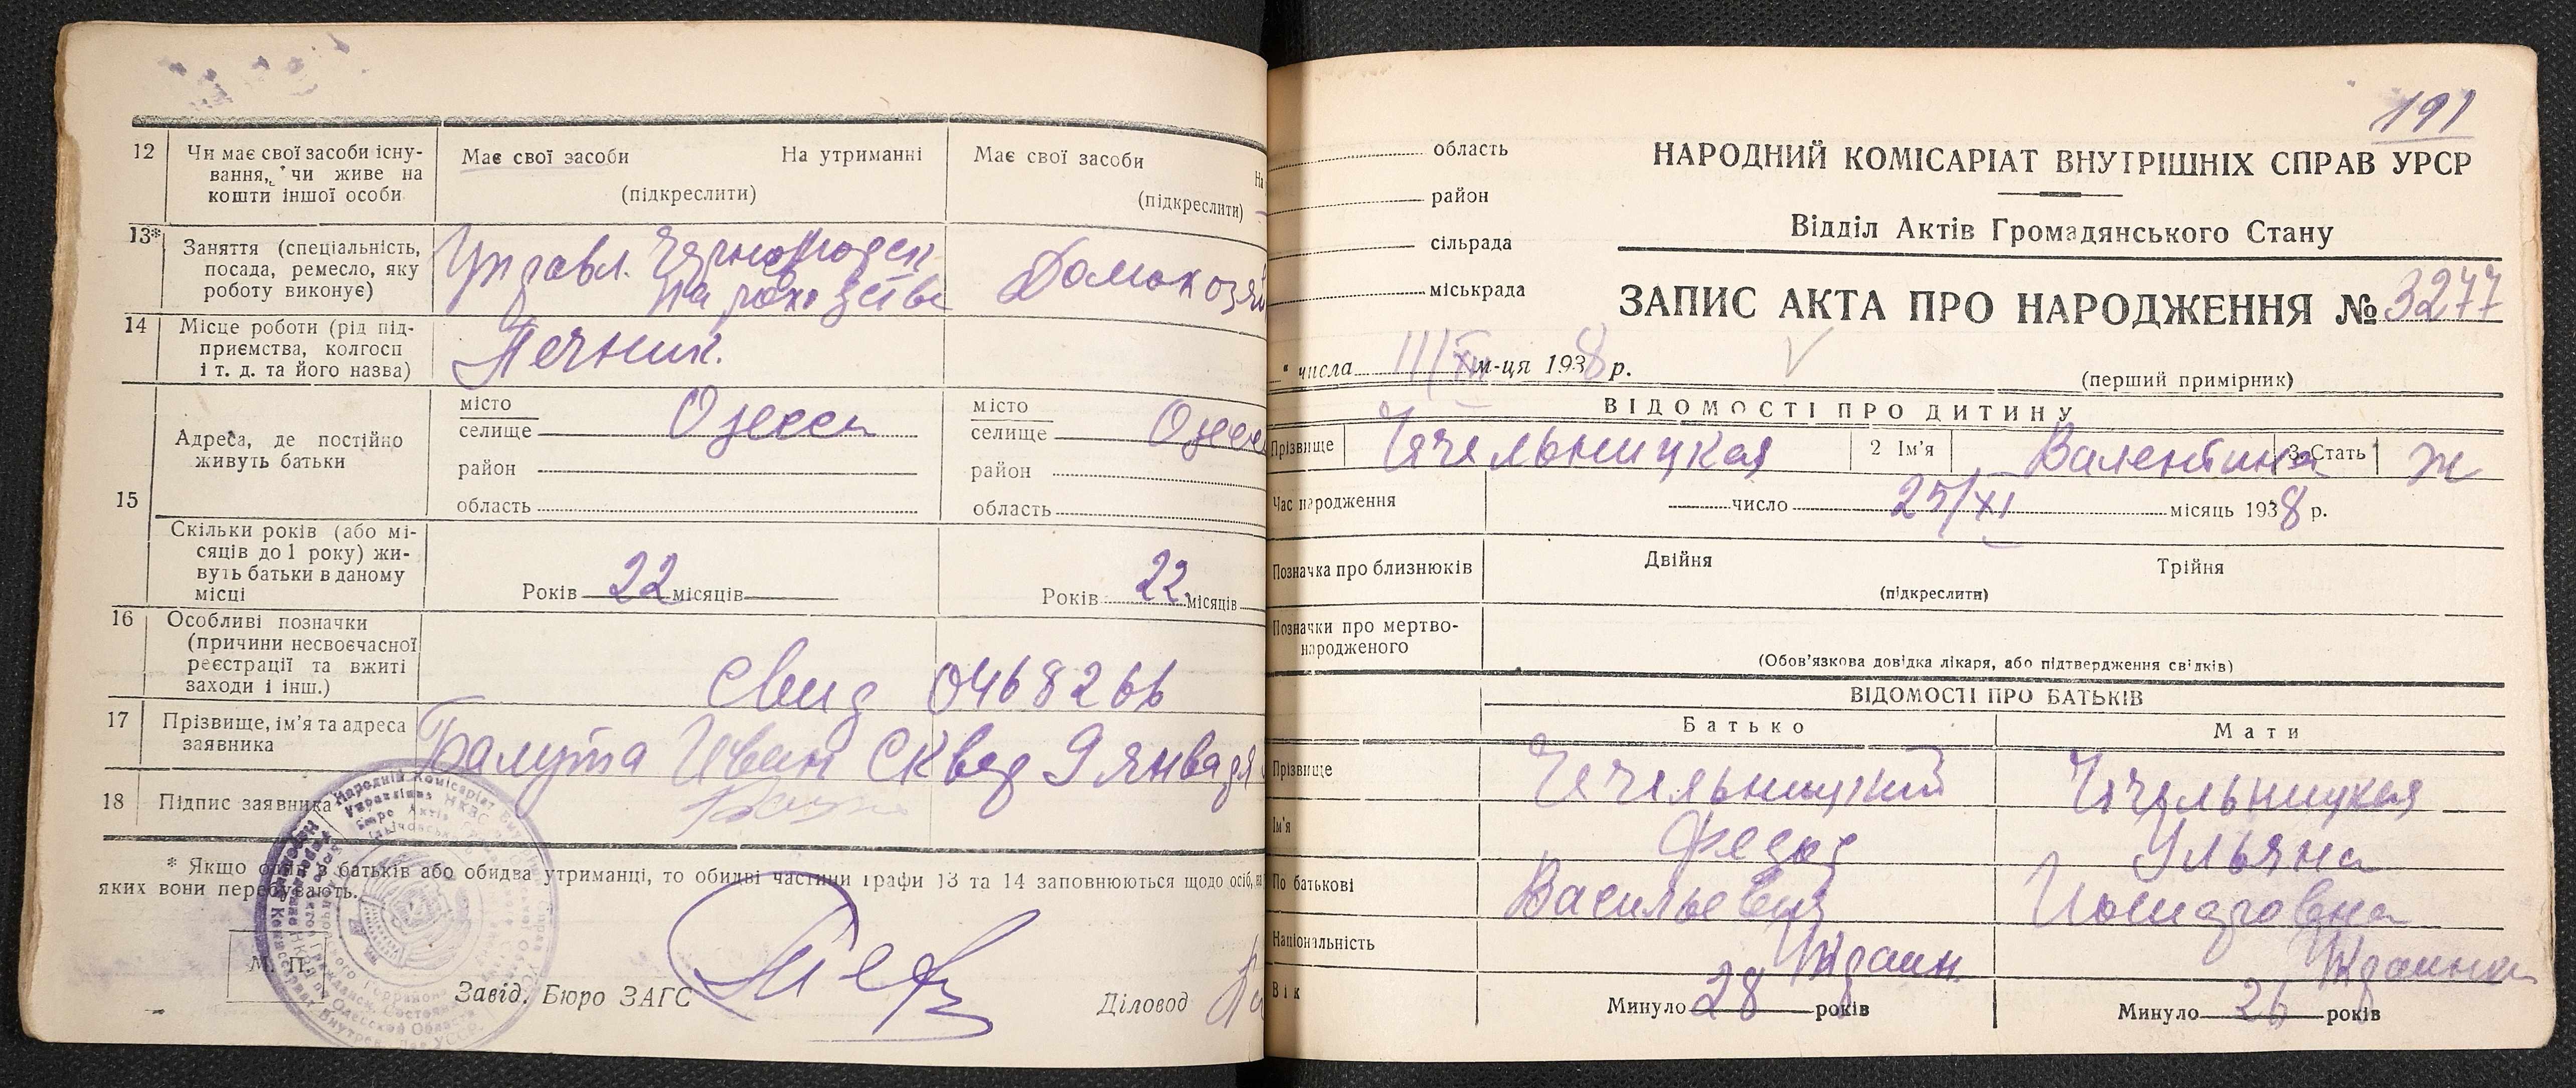 12
Чи має свої засоби існу-
вання, чи живе на
кошти іншої особи
Має свої засоби На утриманні
(підкреслити)
Має свої засоби На
(підкреслити)
13*
Заняття (спеціальність,
посада, ремесло, яку
роботу виконує)
Управл.
Домохозяй
14
Місце роботи (рід під-
приємства, колгосп
і т. д. та його назва)
Печник.
15
Адреса, де постійно
живуть батьки
місто
селище Одесса
район
область
місто
селище Одесс
район
область
Скільки років (або мі-
сяців до 1 року) жи-
вуть батьки в даному
місці
Років 22 місяців
Років 22 місяців
16
Особливі позначки
(причини несвоєчасної
реєстрації та вжиті
заходи і інш.)
Свид 0468266
17
Прізвище, ім'я та адреса
заявника
Балута Иван Сквер 9 января
18
Підпис заявника
* Якщо один з батьків або обидва утриманці, то обидві частини графи 13 та 14 заповнюються щодо осіб, на
яких вони перебувають.
М. П.
Завід. Бюро ЗАГС
Діловод
191
область
район
сільрада
міськрада
НАРОДНИЙ КОМІСАРІАТ ВНУТРІШНІХ СПРАВ УРСР
Відділ Актів Громадянського Стану
ЗАПИС АКТА ПРО НАРОДЖЕННЯ № 3277
" числа III/XII м-ця 1938 р.
(перший примірник)
ВІДОМОСТІ ПРО ДИТИНУ
Прізвище Чечельницкая 2 Ім'я Валентина 3. Стать ж
Час народження число 25/XI місяць 1938 р.
Позначка про близнюків Двійня Трійня
(підкреслити)
Позначки про мертво-
народженого
(Обов'язкова довідка лікаря, або підтвердження свідків)
ВІДОМОСТІ ПРО БАТЬКІВ
Батько Мати
Прізвище Чечельницкий Чечельницкая
Ім'я Федор Ульяна
По батькові Васильевич
Національність Украин. Украинка
Вік Минуло 28 років Минуло 26 років